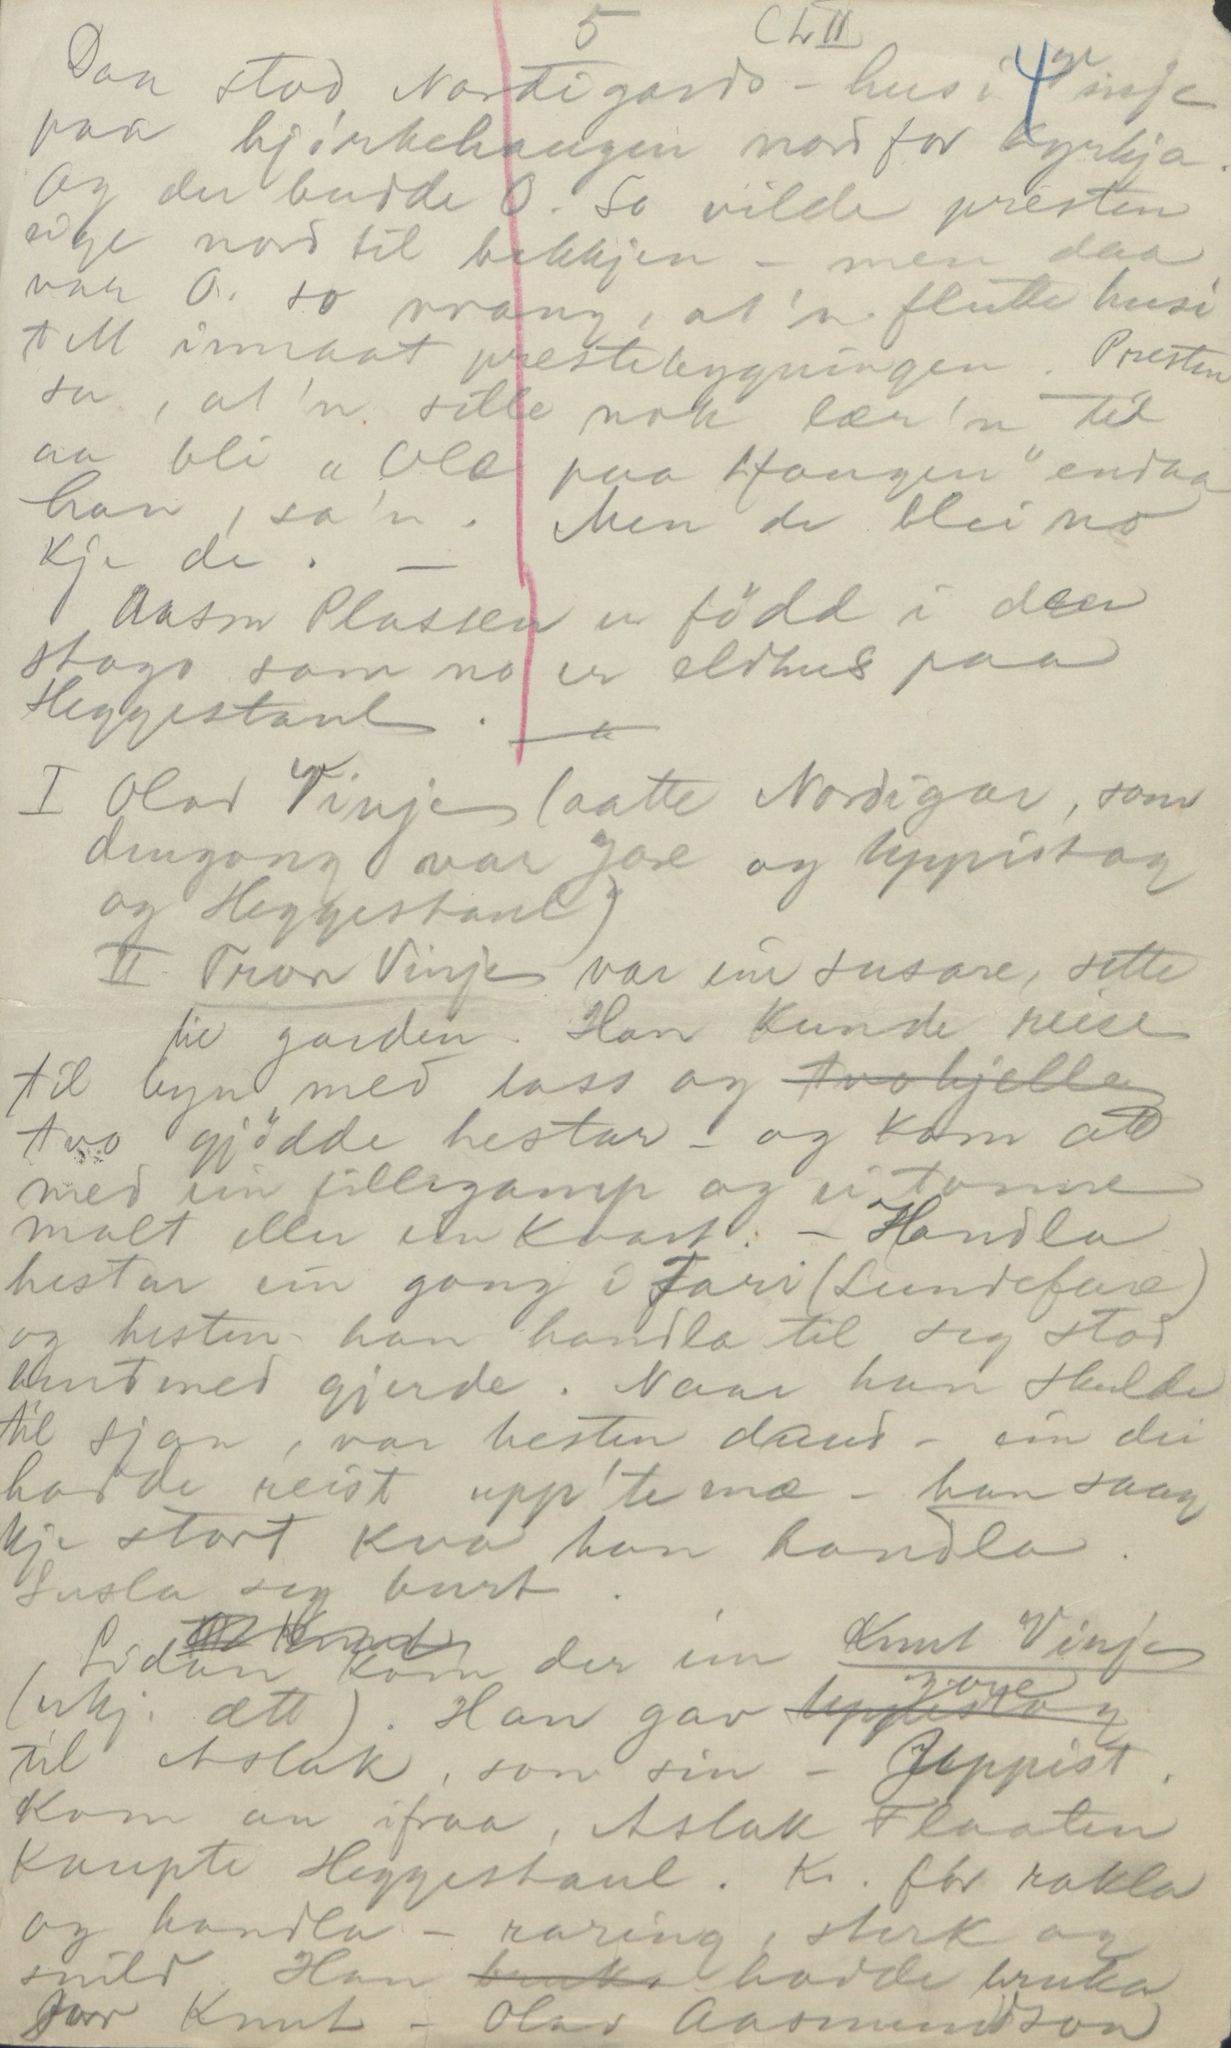 5 Ch II 4
Daa stod Nordigards-husi i Vinje
paa bjørkehaugin nord for kyrkja.
Og der budde O. So vilde presten
eige nord til bekkjen - men daa
var O. so vrang, at'n flutte husi
till innaat prestebygningen. Presten
sa, at'n sille nok lær'n til
aa bli "Ole paa Haugen" endaa
han, sa'n. Men de blei no
kje de. -
Aasm Plassen er född i den
stogo som no er eldhus paa
Heggestaul.
I Olav Vinje (aatte Nordigar, som
dengong var Jore og Uppistog
og Heggestaul)
II Tron Vinje var ein susare, sette
til garden. Han kunde reise
til byn med lass og tvo kjelle
tvo gjödde hestar - og kom att
med ein fillegamp og ei tonne
malt eller ein kvart. - Handla
hestar ein gong i Fari (Lundefare)
og hesten han handla til seg stod
burtmed gjerde. Naar han skulde
til sjaa, var hesten daud - ein dei
hadde reist upp'te mæ - han saag
kje stort kva han handla.
Susla seg burt.
Sidan kom der ein Knut Vinje
(ukj. ætt). Han gav Uppistog Jore
til Aslak, son sin - Uppist.
kom an ifraa, Aslak Flaaten
kaupte Heggestaul. K. for rakla
og handla - raring, sterk og
snild. Han bruka hadde bruka
Jor Knut - Olav Aasmundson